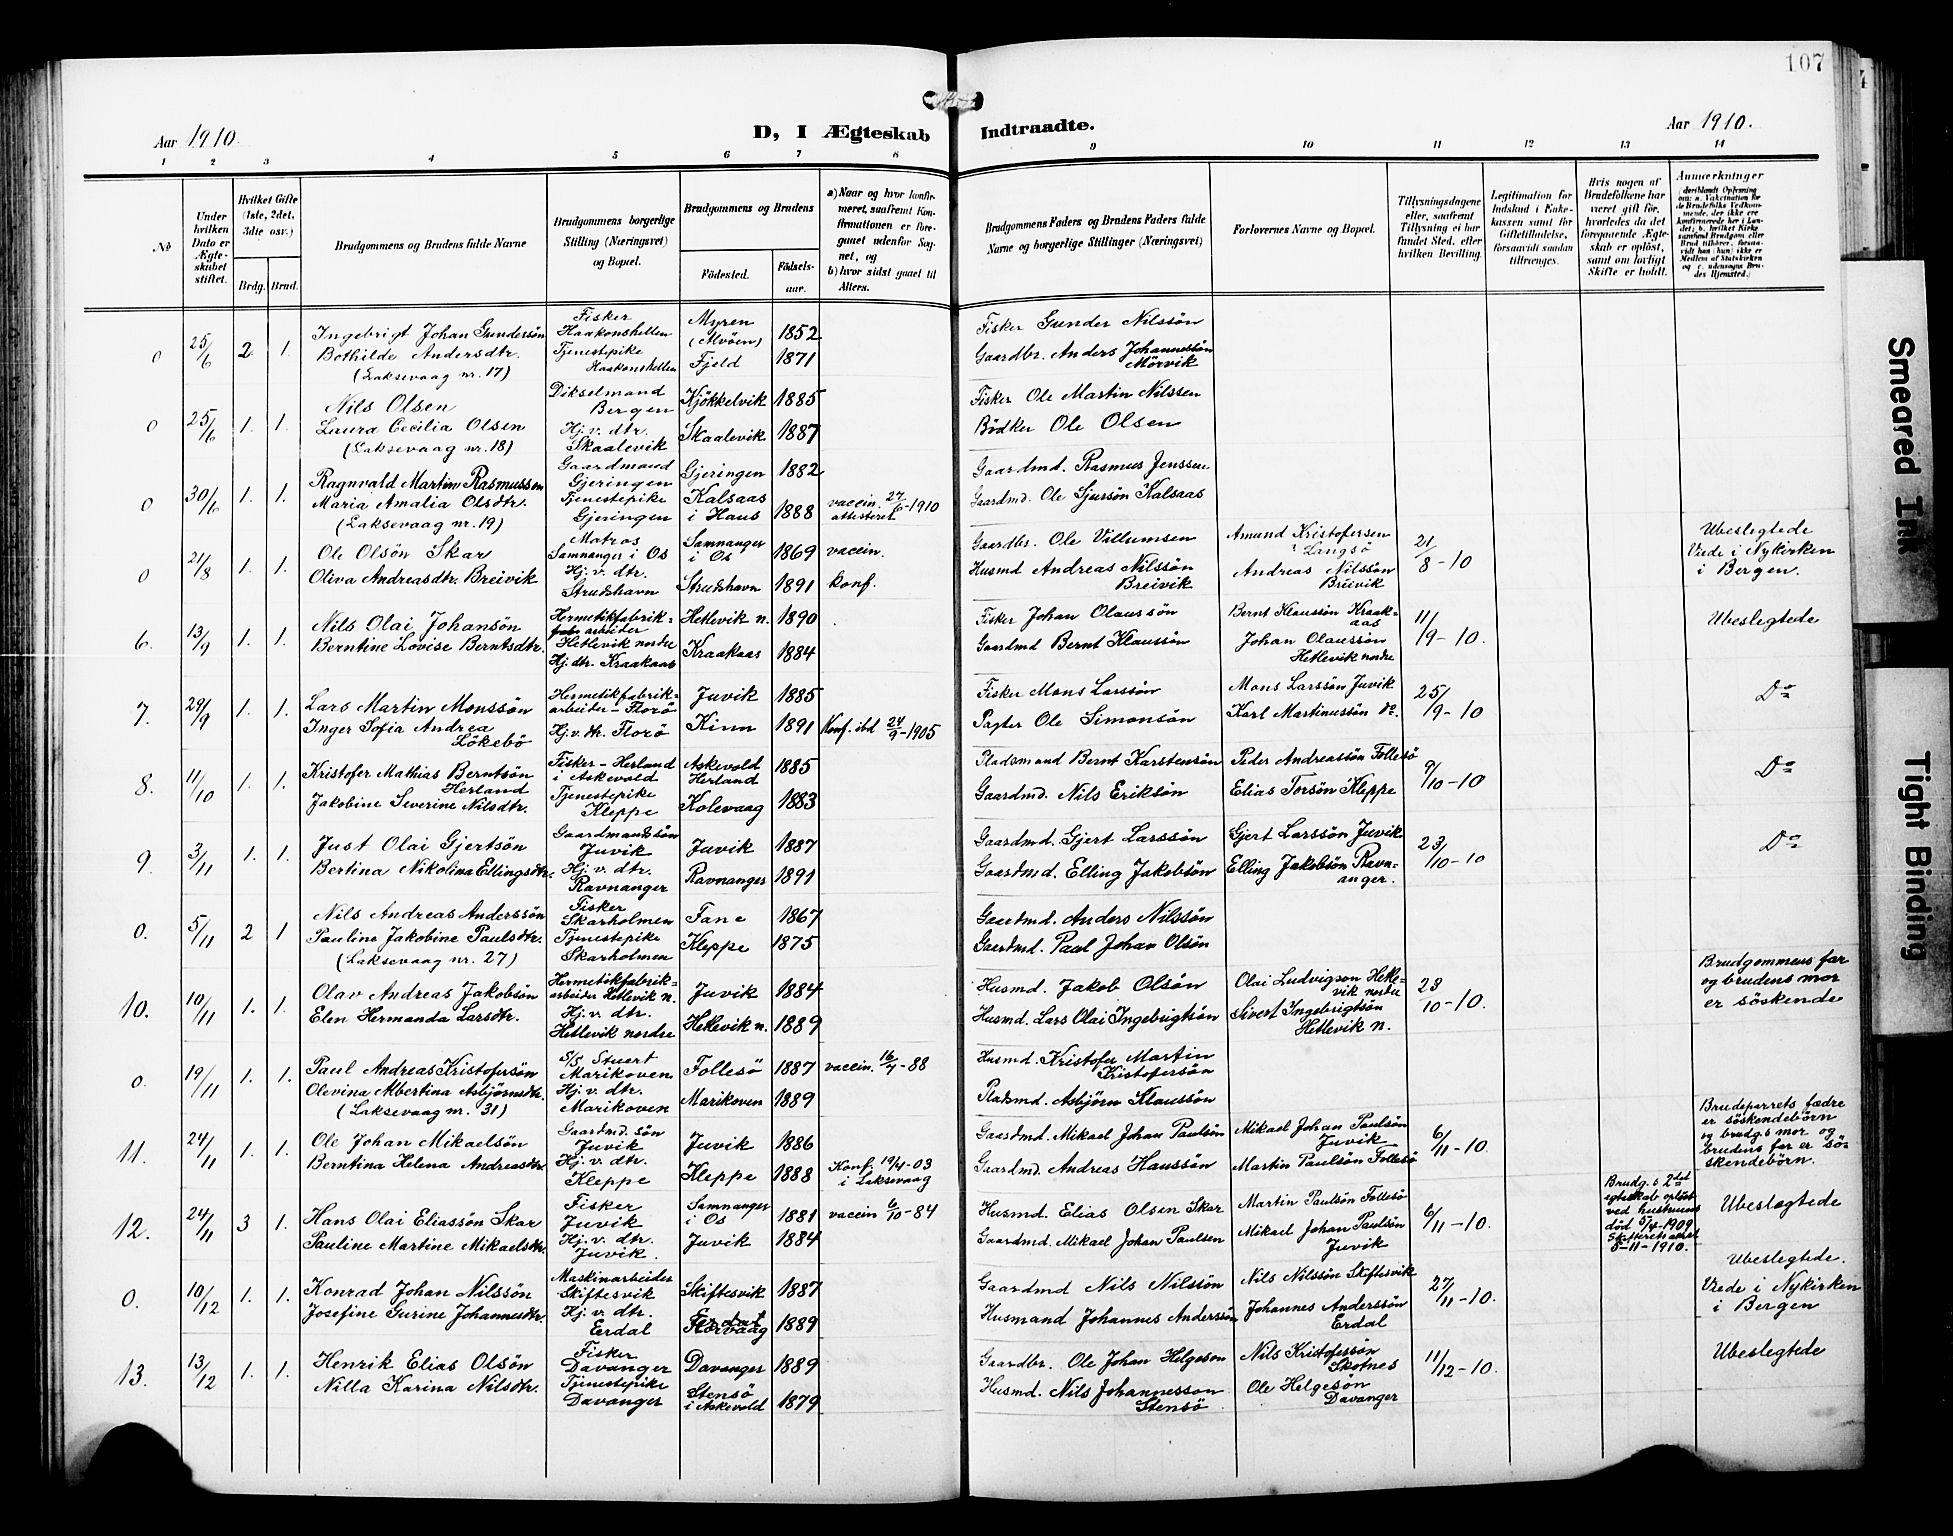 107
Aar 1910.
D, I Ægteskab Indtraadte.
Aar 1910.
1 2 3 4 5 6 7 8 9 10 11 12 13 14
No
Under hvilken Dato er Ægteskabet stiftet.
Hvilket Gifte (1ste, 2det, 3die osv.)
Brdg. Brud.
Brudgommens og Brudens fulde Navne
Brudgommens borgerlige Stilling (Næringsvei) og Bopæl.
Brudgommens og Brudens
Födested. Födselsaar.
a) Naar og hvor konfirmeret, saafremt Konfirmationen er foregaaet udenfor Sognet, og
b) hvor sidst gaaet til Alters.
Brudgommens Faders og Brudens Faders fulde Navne og borgerlige Stillinger (Næringsvei)
Forlovernes Navne og Bopæl.
Tillysningsdagene eller, saafremt Tillysning ei har fundet Sted, efter hvilken Bevilling.
Legitimation for Indskud i Enkekassen samt for Giftetilladelse, forsaavidt saadan tiltrænges.
Hvis nogen af Brudefolkene har været gift før, hvorledes da det foregaaende Ægteskab er oplöst, samt om lovligt Skifte er holdt.
Anmærkninger (deriblandt Oplysning om: a. Vakcination for de Brudefolks Vedkommende, der ikke ere konfirmerede her i Landet; b. hvilket Kirkesamfund Brudgom eller Brud tilhörer, forsaavidt han (hun) ikke er Medlem af Statskirken og c. udensogns Brudes Hjemsted.)
0 25/6 2. 1. Ingebrigt Johan Gundersön Fisker Haakonshellen Myren (Alvöen) 1852 Fisker Gunder Nilssön
Bothilde Andersdtr. Tjenestepike Haakonshellen Fjeld 1871 Gaardbr. Anders Johannessön Mörvik
(Laksevaag nr. 17)
0 25/6 1. 1. Nils Olsen Dikselmand Bergen Kjökkelvik 1885 Fisker Ole Martin Nilssen
Laura Cecilia Olsen Hj. v. dtr. Skaalevik Skaalevik 1887 Bödker Ole Olsen
(Laksevaag nr. 18)
0 30/6 1. 1. Ragnvald Martin Rasmussen Gaardmand Gjeringen Gjeringen 1882 Gaardmd. Rasmus Jenssen
Maria Amalia Olsdtr. Tjenestepike Gjeringen Kalsaas i Haus 1888 vaccin. 27/6-1910 attesteret Gaardmd. Ole Sjursön Kalsaas
(Laksevaag nr. 19)
0 21/8 1. 1. Ole Olsön Skar Matros Samnanger i Os Samnanger i Os 1869 vaccin. Gaardbr. Ole Villumsen Amund Kristofersen Langsö 21/8-10 Ubeslegtede
Oliva Andreasdtr. Breivik Hj. v. dtr. Strudshavn Strudshavn 1891 konf. Husmd Andreas Nilssön Breivik Andreas Nilssön Breivik Viede i Nykirken i Bergen.
6. 13/9 1. 1. Nils Olai Johansön Hermetikfabrikarbeider Hetlevik nordre Hetlevik n. 1890 Fisker Johan Olaussön Bernt Klaussön Kraakaas 11/9-10. Ubeslegtede
Berntine Lovise Berntsdtr. Hj. dtr. Kraakaas Kraakaas 1884 Gaardmd Bernt Klaussön Johan Olaussön Hetlevik nordre
7. 29/9 1. 1. Lars Martin Monssön Hermetikfabrikarbeider - Florö Juvik 1885 Fisker Mons Larssön Mons Larssön Juvik 25/9-10 Do
Inger Sofia Andrea Lökebö Hj. v. dtr. Florö Kinn 1891 Konf. ibd 24/9-1905 Pagter Ole Simonsön Karl Martinussön do.
8. 11/10 1. 1. Kristofer Mathias Berntsön Herland Fisker - Herland i Askevold Askevold Herland 1885 Pladsmand Bernt Karstensön Peder Andreassön Follesö 9/10-10 Do
Jakobine Severine Nilsdtr. Tjenestepike Kleppe Kolevaag 1883 Gaardmd. Nils Eriksön Elias Torsön Kleppe
9. 3/11 1. 1. Just Olai Gjertsön Gaardmandssön Juvik Juvik 1887 Gaardmd. Gjert Larssön Gjert Larssön Juvik 23/10-10 Do
Bertina Nikolina Ellingsdtr. Hj. v. dtr. Ravnanger Ravnanger 1891 Gaardmd. Elling Jakobsön Elling Jakobsön Ravnanger.
0. 5/11 2 1 Nils Andreas Anderssön Fisker Skarholmen Fane 1867 Gaardmd. Anders Nilssön
Pauline Jakobine Paulsdtr. Tjenestepike Skarholmen Kleppe 1875 Gaardmd. Paul Johan Olsön
(Laksevaag nr. 27)
10. 10/11 1. 1. Olav Andreas Jakobsön Hermetikfabrikarbeider Hetlevik n. Juvik 1884 Husmd. Jakob Olsön Olai Ludvigson Hetlevik nordre 23/10-10. Brudgommens far og brudens mor er söskende
Elen Hermanda Larsdtr. Hj. v. dtr. Hetlevik nordre Hetlevik n. 1889 Husmd. Lars Olai Ingebrigtsön Sivert Ingebrigtsön Hetlevik n.
0. 19/11 1. 1. Paul Andreas Kristofersön S/S Stuert Marikoven Follesö 1887 vaccin. 16/7-88 Husmd. Kristofer Martin Kristofersön
Olevina Albertina Asbjörnsdtr. Hj. v. dtr. Marikoven Marikoven 1889 Pladsmd. Asbjörn Klaussön
(Laksevaag nr. 31)
11. 24/11 1. 1. Ole Johan Mikaelsön Gaardmd. sön Juvik Juvik 1886 Gaardmd. Mikael Johan Paulsön Mikael Johan Paulsön Juvik 6/11-10. Brudeparrets fædre er söskendebörn og brudgs mor og brudens far er söskendebörn.
Berntina Helena Andreasdtr. Hj. v. dtr. Kleppe Kleppe 1888 Konf. 19/4-03 i Laksevaag Gaardmd. Andreas Hanssön Martin Paulsön Follesö
12. 24/11 3 1. Hans Olai Eliassön Skar Fisker Juvik Samnanger i Os 1881 vaccin 6/10-84 Husmd. Elias Olsen Skar Martin Paulsön Follesö 6/11-10. Brudg.s 2det egteskab oplöst ved hustruens död 5/4-1909 Skifteret attest 5-11-1910. Ubeslegtede
Pauline Martine Mikaelsdtr. Hj. v. dtr. Juvik. Juvik 1884 Gaardmd. Mikael Johan Paulsen Mikael Johan Paulsön Juvik
0. 10/12 1. 1. Konrad Johan Nilssön Maskinarbeider Skiftesvik Skiftesvik 1887 Gaardmd Nils Nilssön Nils Nilssön Skiftesvik 27/11-10. Ubeslegtede.
Josefine Gurine Johannesdtr. Hj. v. dtr. Erdal Florvaag 1889 Husmand Johannes Anderssön Johannes Anderssön Erdal Viede i Nykirken i Bergen
13. 13/12 1. 1. Henrik Elias Olsön Fisker Davanger Davanger 1889 Gaardbr. Ole Johan Helgeson Nils Kristofersön Skotnes 11/12-10. Ubeslegtede
Nilla Karina Nilsdtr. Tjenestepike Davanger Stensö i Askevold 1879 Husmd. Nils Johannesson Stensö Ole Helgesön Davanger
Smeared Ink
Tight Binding